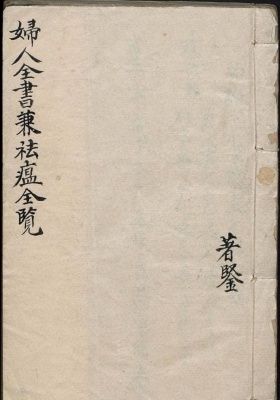 婦人全書兼祛瘟全覽
著鋻